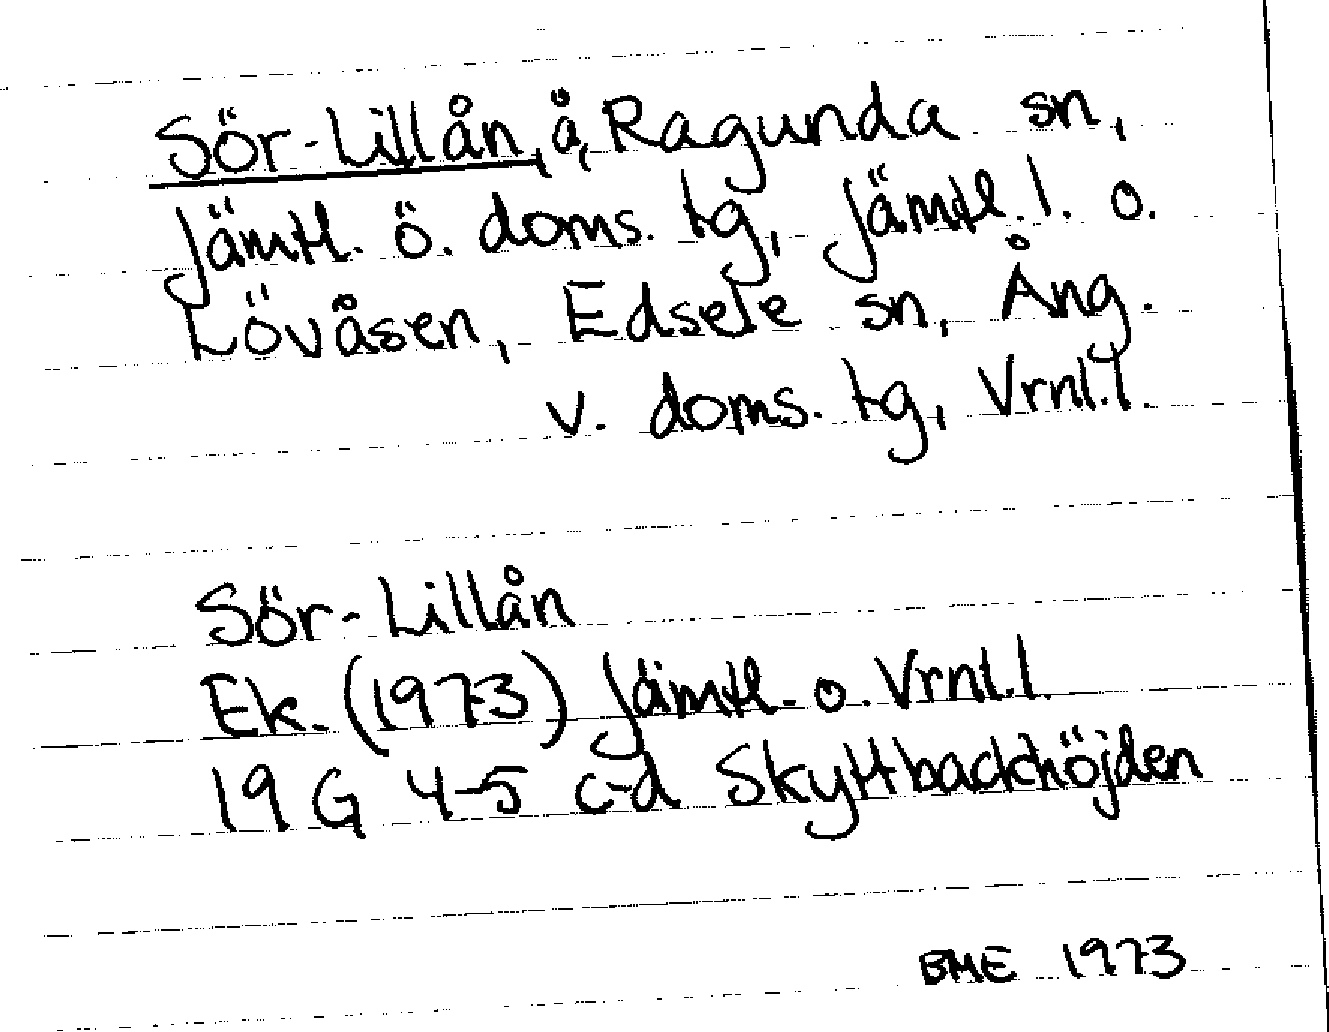 Sör-Lillån, å, Ragunda sn,
Jämtl. ö. doms. tg, Jämtl. l. o.
Lövåsen, Edsele sn, Ång.
v. doms. tg, Vrnl. l.
Sör-Lillån
Ek. (1973) Jämtl. o. Vrnl. l.
19 G 4-5 c-d Skyttbackhöjden
BME 1973